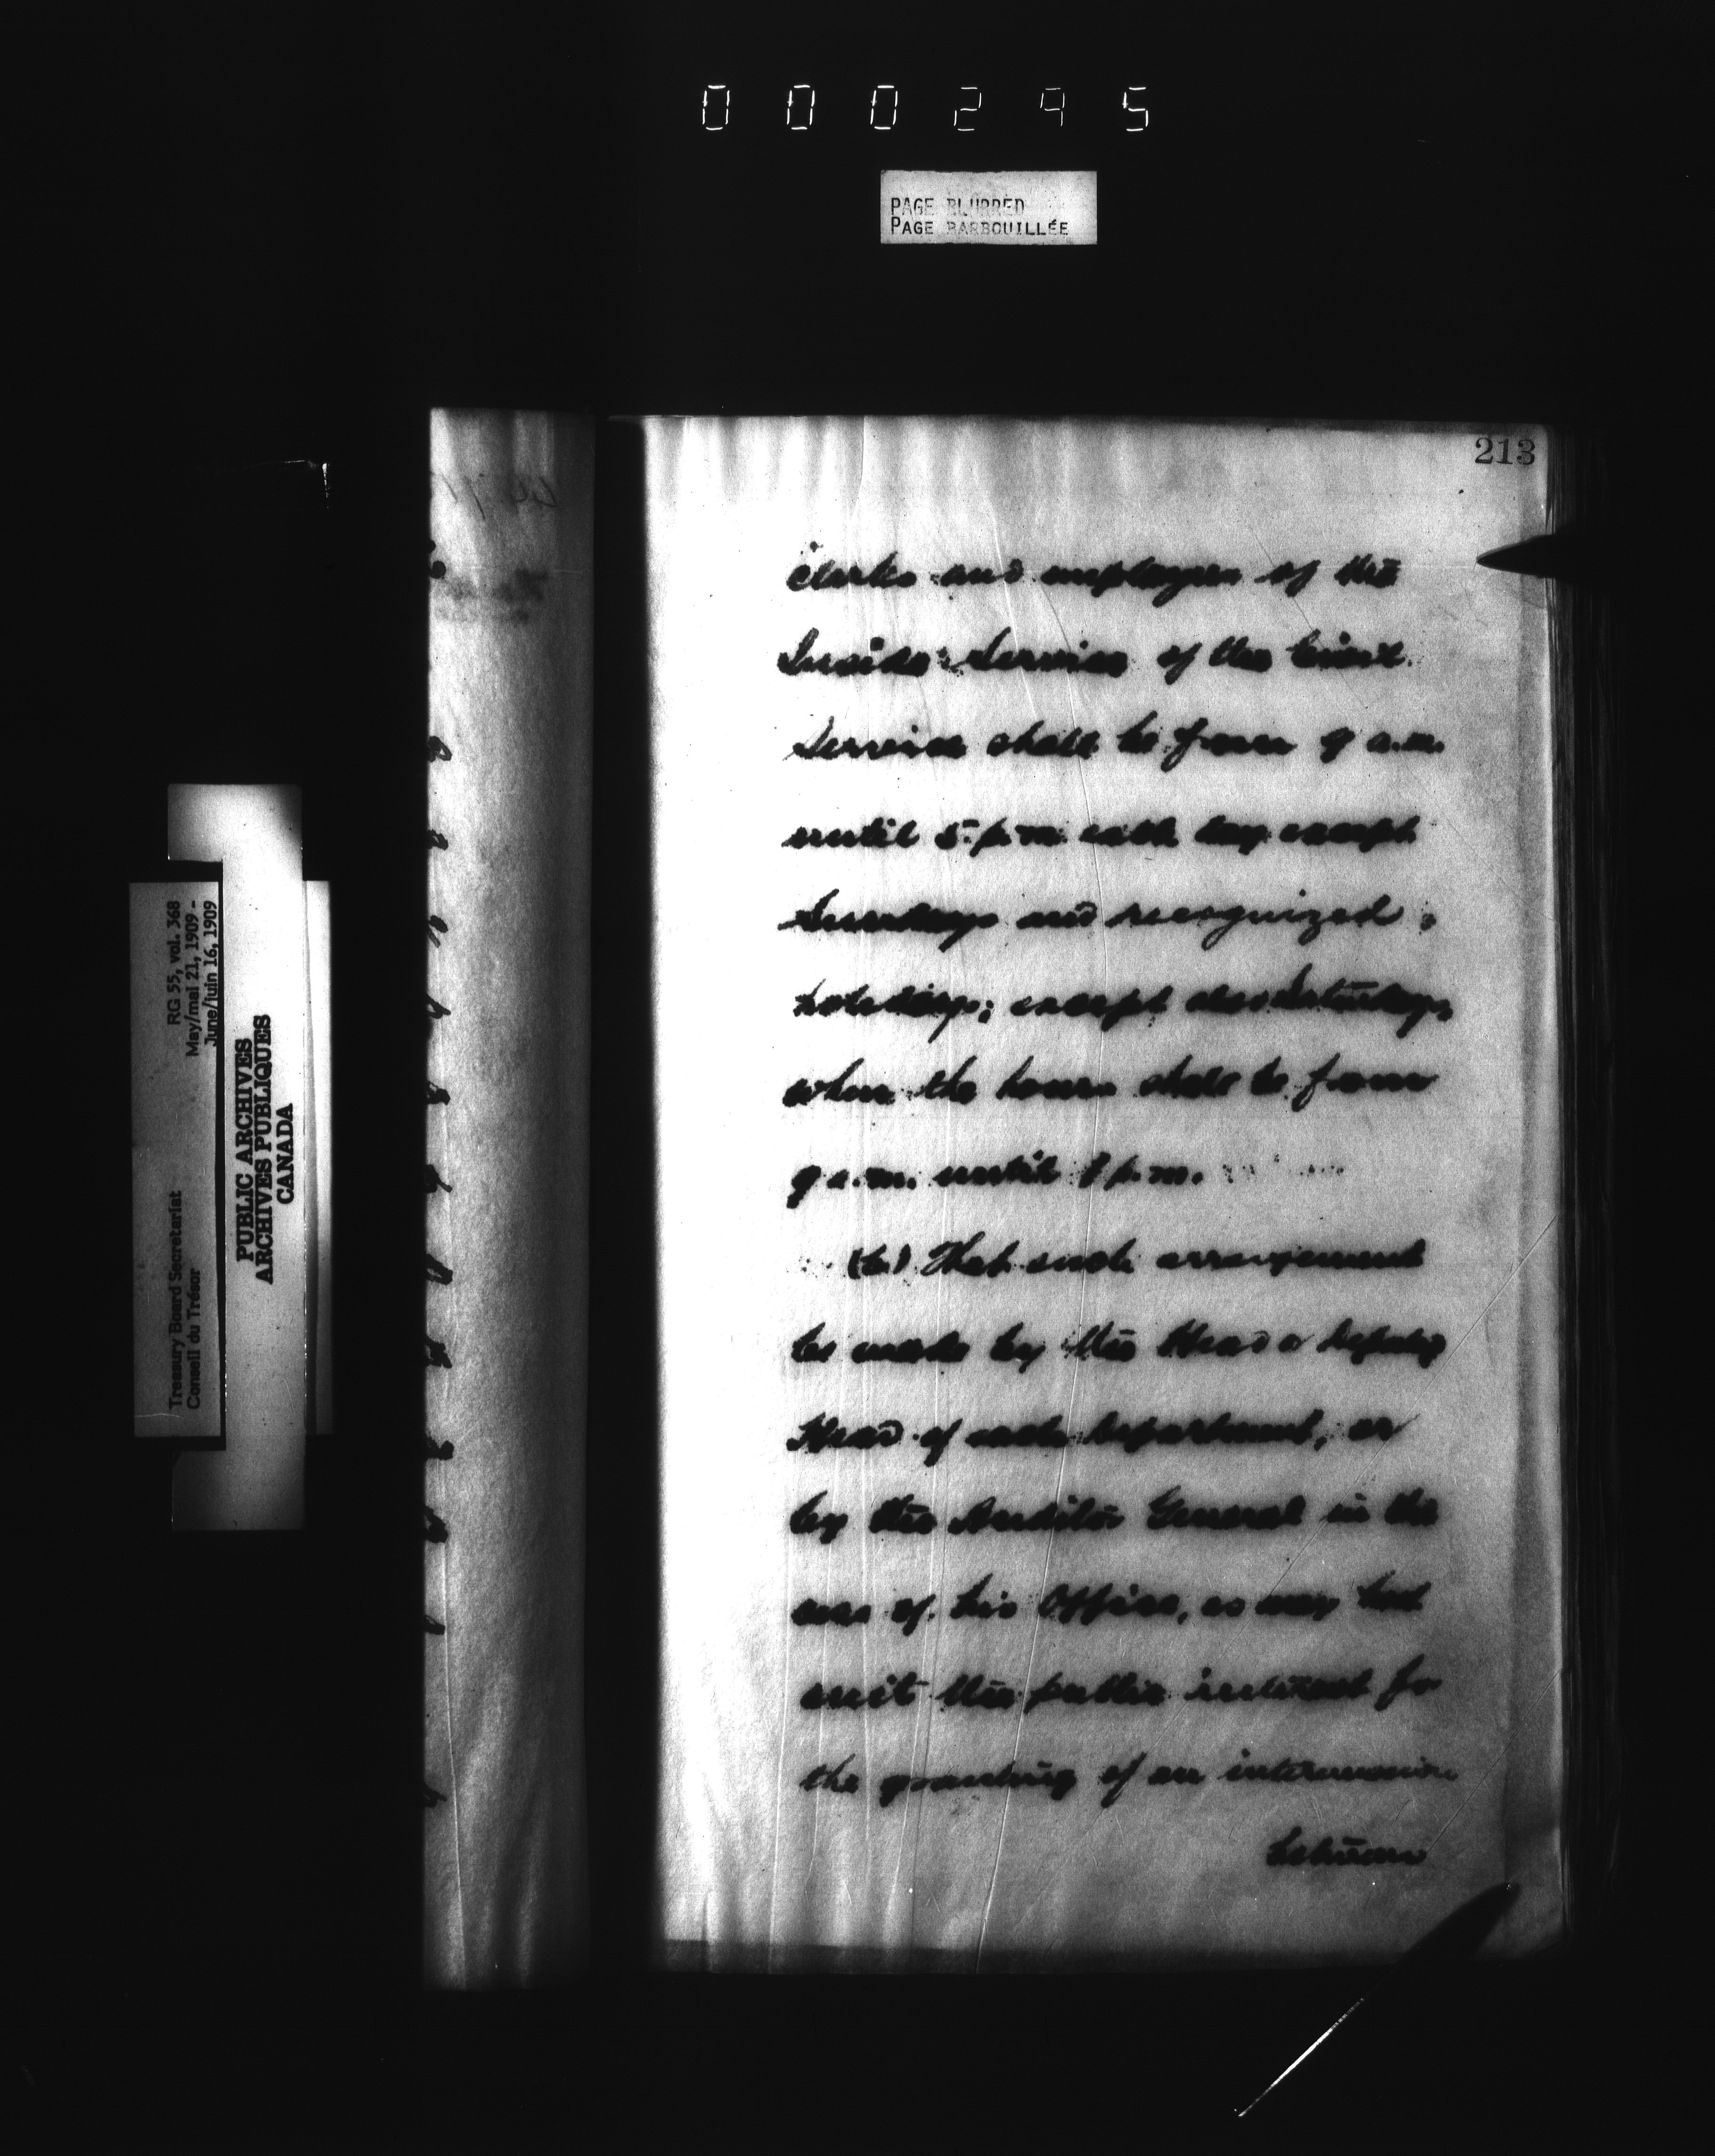 000295
PAGE BLURRED
PAGE BARBOUILLÉE
213
clerks and employees of the
Inside Service of the Civil
Service shall be from 9 a.m.
until 5 p.m. each day except
Sundays and recognized
holidays; except also Saturdays,
when the hours shall be from
9 a.m. until 1 p.m.
(b) That such arrangement
be made by the Head or deputy
Head of each department, or
by the Auditor General in the
case of his Office, as may best
suit the public interest for
the granting of an intermission
between
RG 55, vol. 368
May/mai 21, 1909 -
June/juin 16, 1909
Treasury Board Secretariat
Conseil du Trésor
PUBLIC ARCHIVES
ARCHIVES PUBLIQUES
CANADA